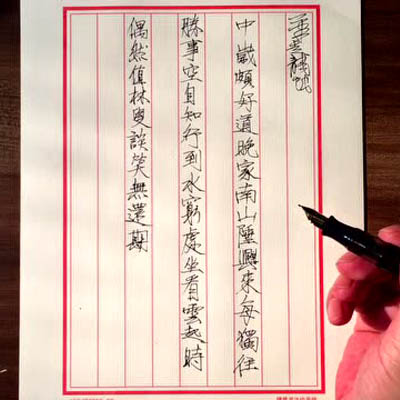 中歲頗好道晚家南山陲興來每獨往
勝事空自知行到水窮處坐看雲起時
偶然值林叟談笑無還期